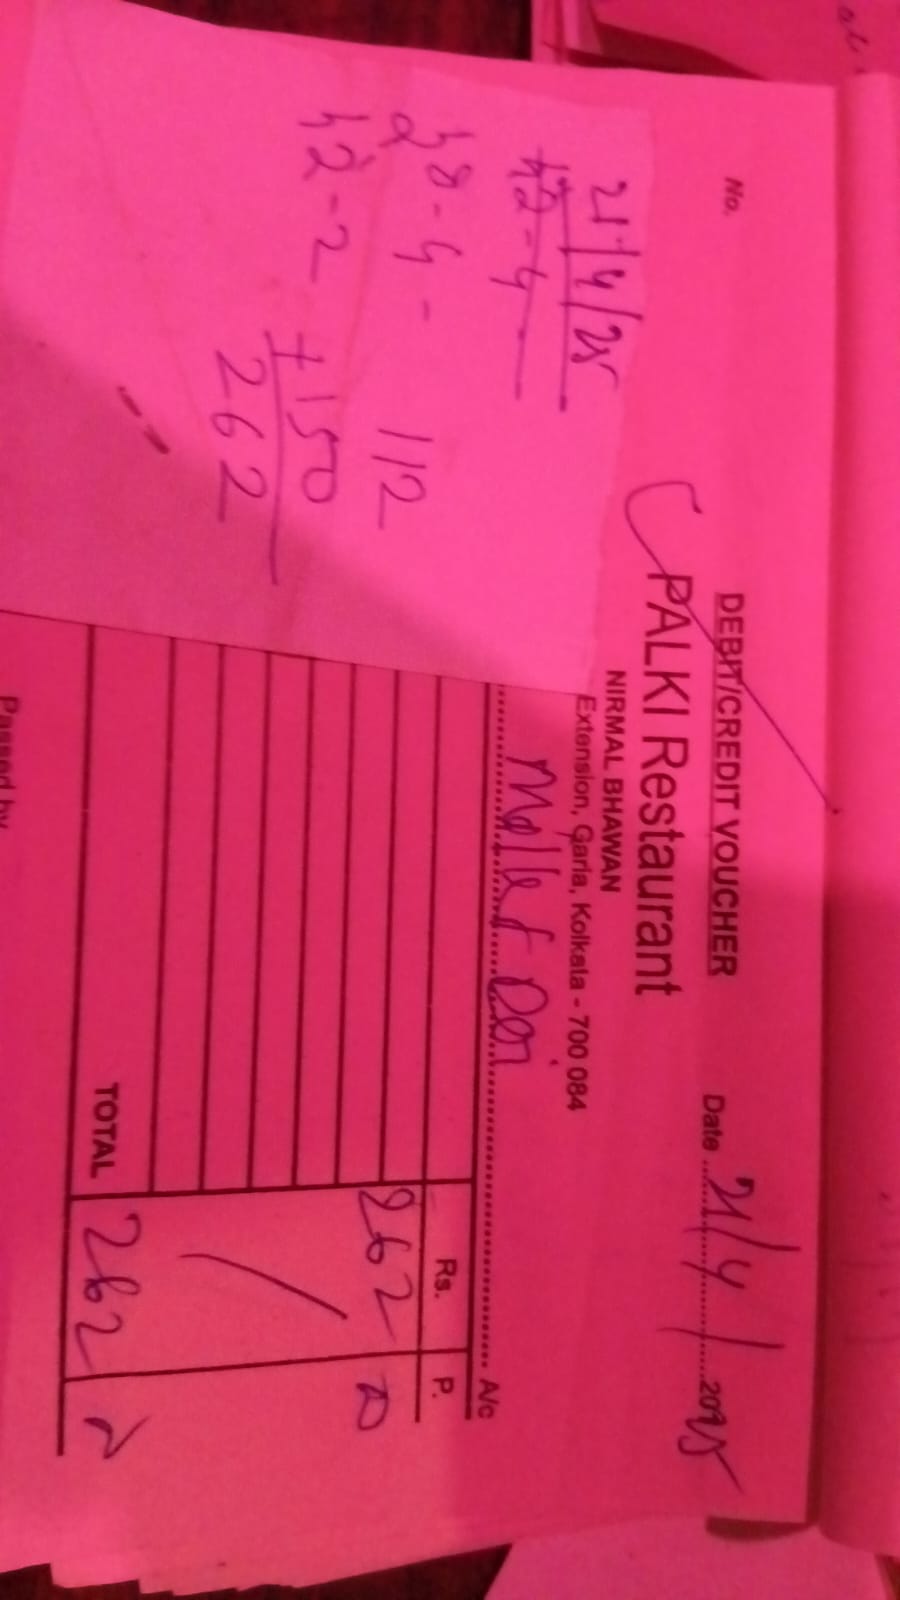 No.
DEBIT/CREDIT VOUCHER
Date 21/4/2025
PALKI Restaurant
NIRMAL BHAWAN
Extension, Garia, Kolkata - 700 084
A/c
Rs. P.
262
TOTAL 262
Passed by
21/4/25
28-4- 112
42-2
+150
262